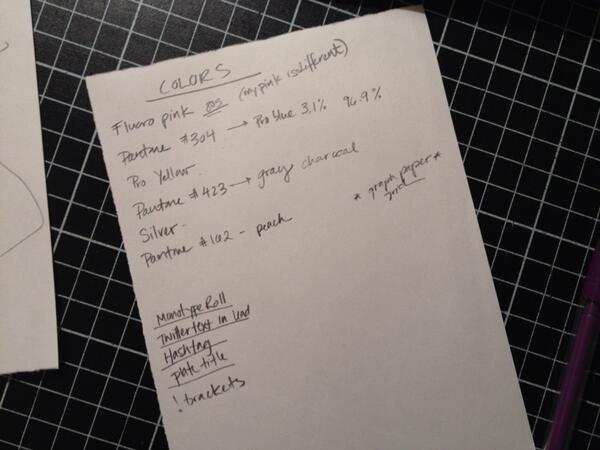 COLORS
Fluoro pink (my pink is different)
Pantone #304 → Pro blue 3.1% 96.9%
Pro Yellow
Pantone #423 → gray charcoal
* graph paper *
Silver
Pantone #162 - peach
Monotype Roll
Twitter text in lead
Hashtag
plate title
! brackets